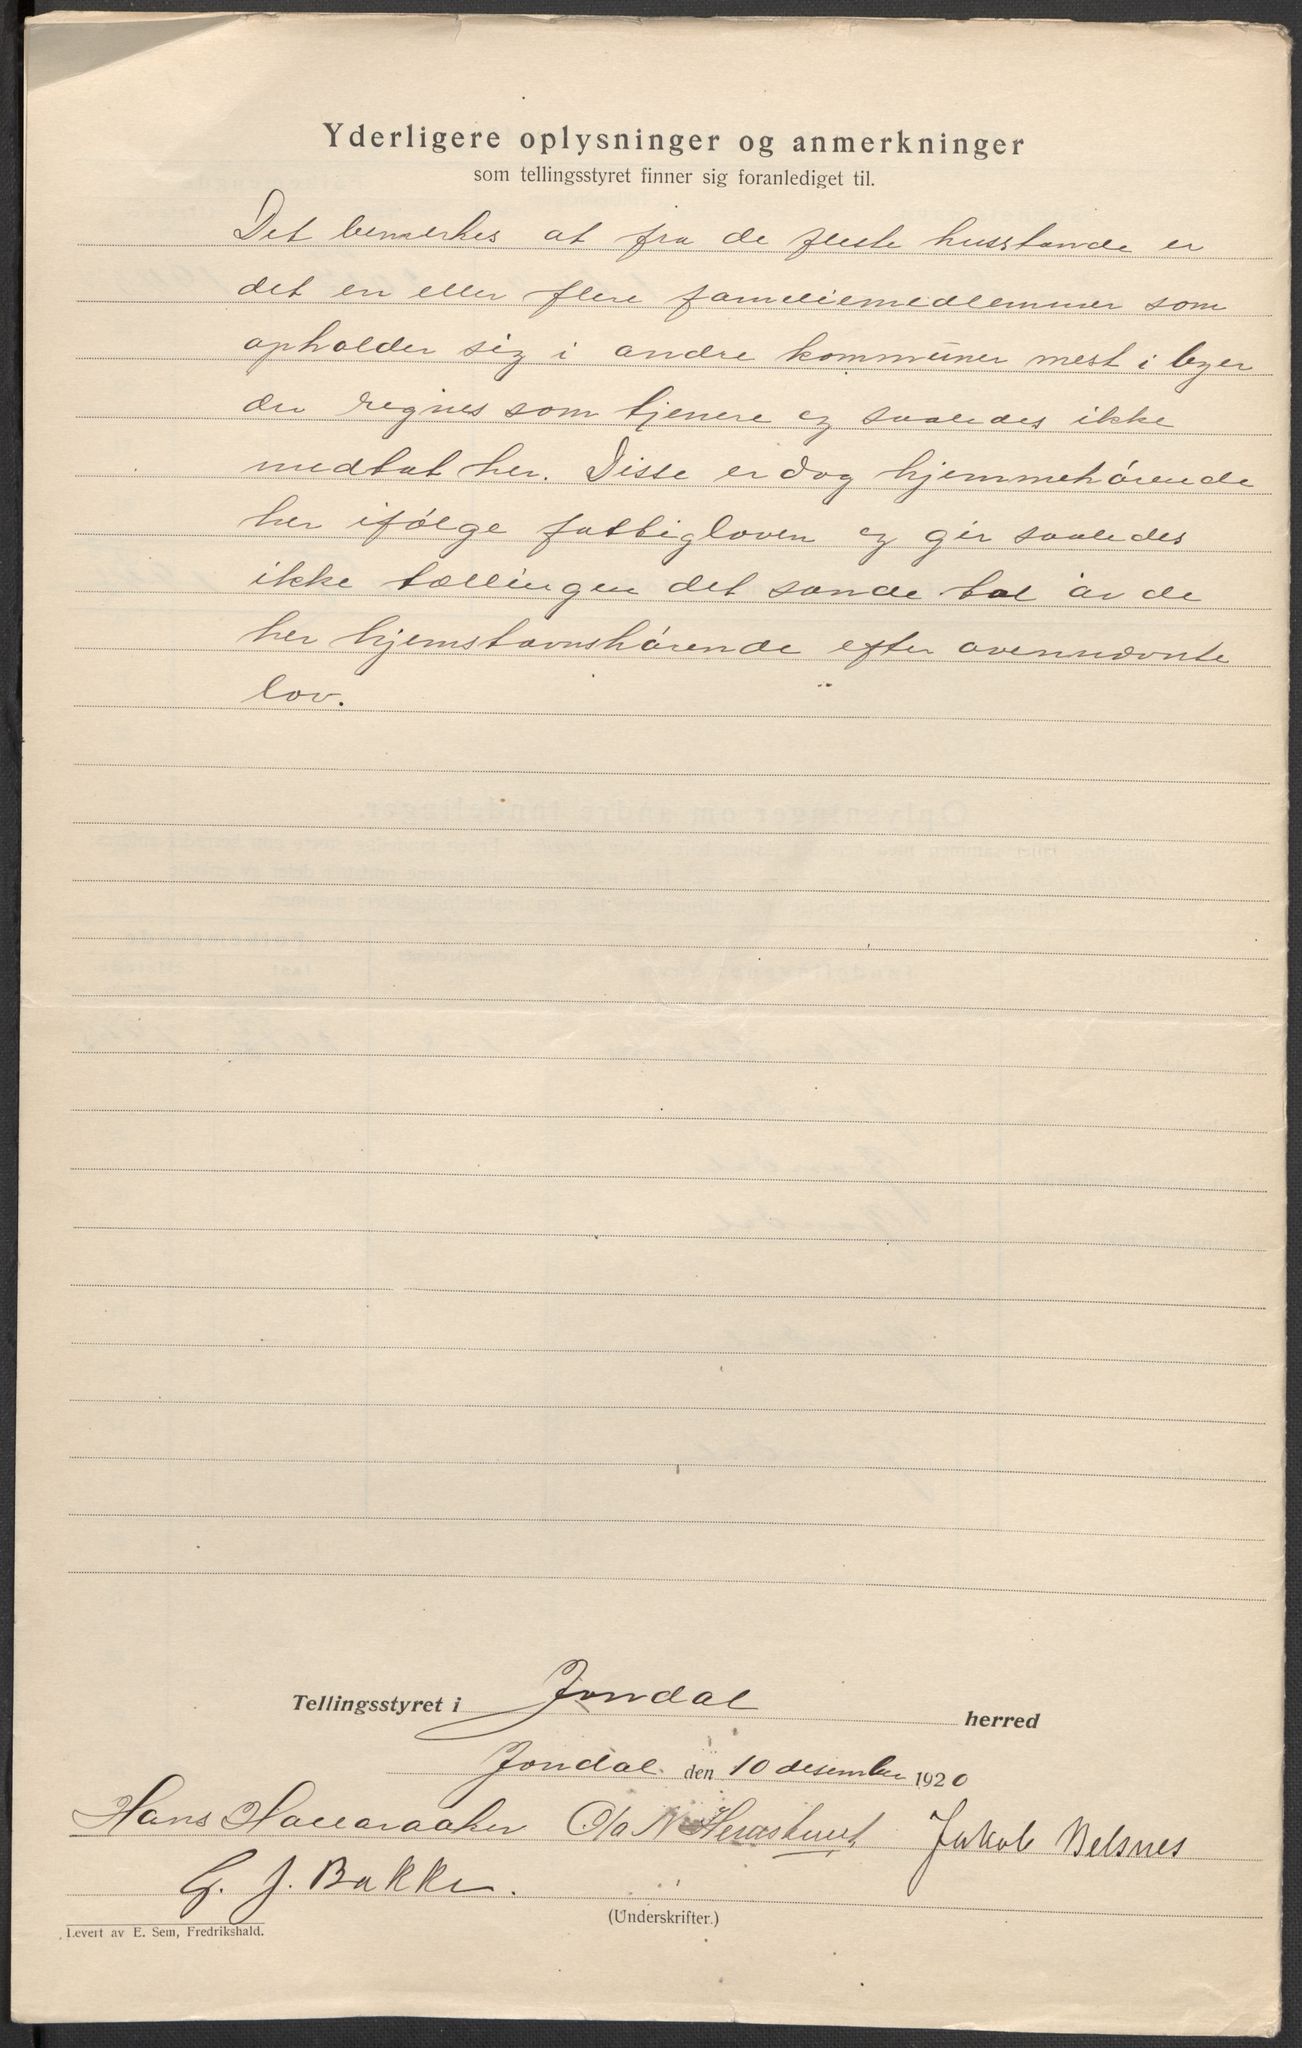 Yderligere oplysninger og anmerkninger
som tellingsstyret finner sig foranlediget til.
Det bemerkes at fra de fleste husstande er
det en eller flere familiemedlemmer som
opholder sig i andre kommuner mest i byer
der regnes som tjenere og saaledes ikke
medtat her. Disse er dog hjemmehørende
her ifølge fattigloven og gir saaledes
ikke tællingen det sande tal av de
her hjemstavnshørende efter ovennævnte
lov.
Tellingsstyret i Jondal herred
Jondal den 10 desember 1920
Hans Jakob
G. J. Bakke.
(Underskrifter.)
Levert av E. Sem, Fredrikshald.